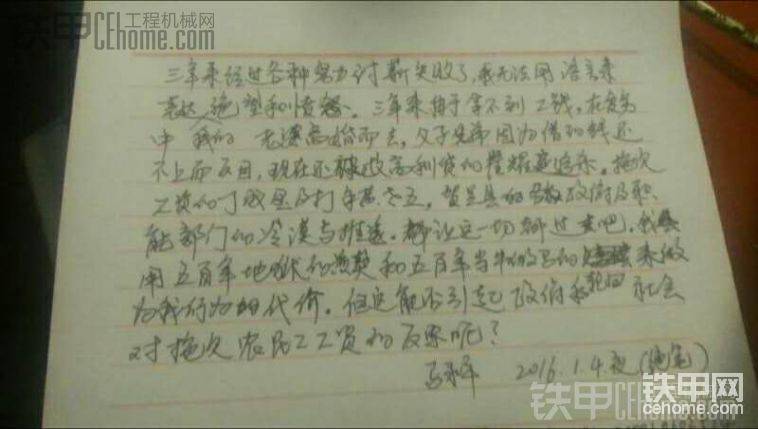 铁甲 工程机械网
CEhome.com
三年来经过各种努力讨薪失败了，我无法用语言来
表达绝望和愤怒。三年来由于拿不到工钱，在贫穷
中我的 无谓离婚而去，父子兄弟因为借的钱还
不上而反目，现在还被放高利贷的 追杀。拖欠
工资的丁 及打手 ，贺兰县的 政府及职
能部门的冷漠与推 。都让这一切都过去吧，我
用五百年地狱的 和五百年当牛做马的 来做
为我行为的代价。但这能否引起政府和 社会
对拖欠农民工工资的反思呢？
马永平 2016.1.4.夜
铁甲网
cehome.com
铁甲
CEhome.com